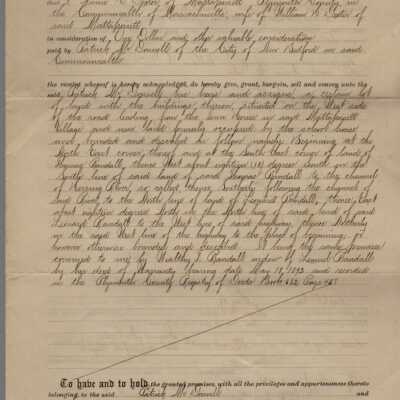 the Commonwealth of Massachusetts, wife of William
said Mattapoisett
in consideration of One Dollar and other valuable consideration
paid by Patrick Mc Donnell of the City of New Bedford in said
Commonwealth
the receipt whereof is hereby acknowledged, do hereby give, grant, bargain, sell and convey unto the
said Patrick Mc Donnell his heirs and assigns, a certain lot
of land with the buildings thereon, situated on the West side
of the road leading from the Town House in said Mattapoisett
Village and near land formerly occupied by the school house
and bounded and described as follows namely: Beginning at the
North East corner thereof and at the South East corner of land of
Randall, thence West eighteen (18) degrees South in the
South line of said land of said Randall to the channel
of Herring River, so called, thence Southerly following the channel of
said River to the North line of land of Leonard Randall, thence East
eighteen degrees North in the North line of said land of said
Leonard Randall to the West line of said highway thence Northerly
in the said West line of the highway to the place of beginning, or
however otherwise bounded and described. It being the same premises
conveyed to me by Wealthy J. Randall widow of Lemuel Randall
by her deed of Warranty bearing date May 1893 and recorded
in the Plymouth County Registry of Deeds Book Page
To have and to hold the granted premises, with all the privileges and appurtenances thereto
belonging, to the said Patrick Mc Donnell and